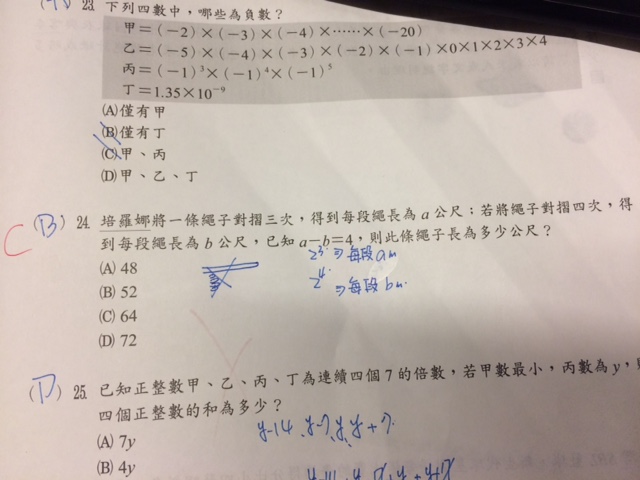 23. 下列四數中，哪些為負數？
甲＝(－2)×(－3)×(－4)×……×(－20)
乙＝(－5)×(－4)×(－3)×(－2)×(－1)×0×1×2×3×4
丙＝(－1)³×(－1)⁴×(－1)⁵
丁＝1.35×10⁻⁹
(A)僅有甲
(B)僅有丁
(C)甲、丙
(D)甲、乙、丁
C (B) 24. 培羅娜將一條繩子對摺三次，得到每段繩長為 a 公尺；若將繩子對摺四次，得
到每段繩長為 b 公尺，已知 a－b＝4，則此條繩子長為多少公尺？
(A) 48
2³ ⇒ 每段 am
(B) 52
2⁴ ⇒ 每段 bm
(C) 64
(D) 72
(D) 25. 已知正整數甲、乙、丙、丁為連續四個 7 的倍數，若甲數最小，丙數為 y，
四個正整數的和為多少？
(A) 7y
y-14、y-7、y、y+7
(B) 4y